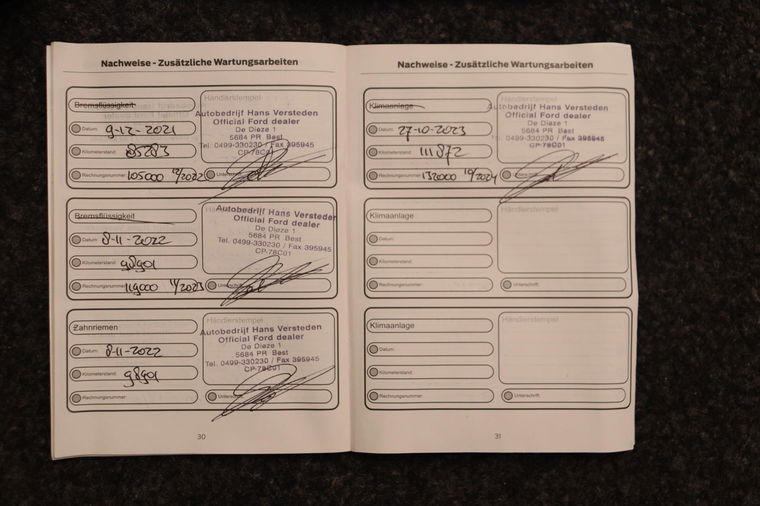 Nachweise - Zusätzliche Wartungsarbeiten
Bremsflüssigkeit
Datum: 9-12-2021
Kilometerstand: 85283
Rechnungsnummer: 105000 12/2022
Händlerstempel
Autobedrijf Hans Versteden
Official Ford dealer
De Dieze 1
5684 PR Best
Tel. 0499-330230 / Fax 395945
CP-78C01
Unterschrift
Bremsflüssigkeit
Datum: 8-11-2022
Kilometerstand: 98901
Rechnungsnummer: 119000 11/2023
Händlerstempel
Autobedrijf Hans Versteden
Official Ford dealer
De Dieze 1
5684 PR Best
Tel. 0499-330230 / Fax 395945
CP-78C01
Unterschrift
Zahnriemen
Datum: 8-11-2022
Kilometerstand: 98901
Rechnungsnummer:
Händlerstempel
Autobedrijf Hans Versteden
Official Ford dealer
De Dieze 1
5684 PR Best
Tel. 0499-330230 / Fax 395945
CP-78C01
Unterschrift
30
Nachweise - Zusätzliche Wartungsarbeiten
Klimaanlage
Datum: 27-10-2023
Kilometerstand: 111872
Rechnungsnummer: 132000 10/2024
Händlerstempel
Autobedrijf Hans Versteden
Official Ford dealer
De Dieze 1
5684 PR Best
Tel. 0499-330230 / Fax 395945
CP-78C01
Klimaanlage
Datum:
Kilometerstand:
Rechnungsnummer:
Händlerstempel
Unterschrift:
Klimaanlage
Datum:
Kilometerstand:
Rechnungsnummer:
Händlerstempel
Unterschrift:
31